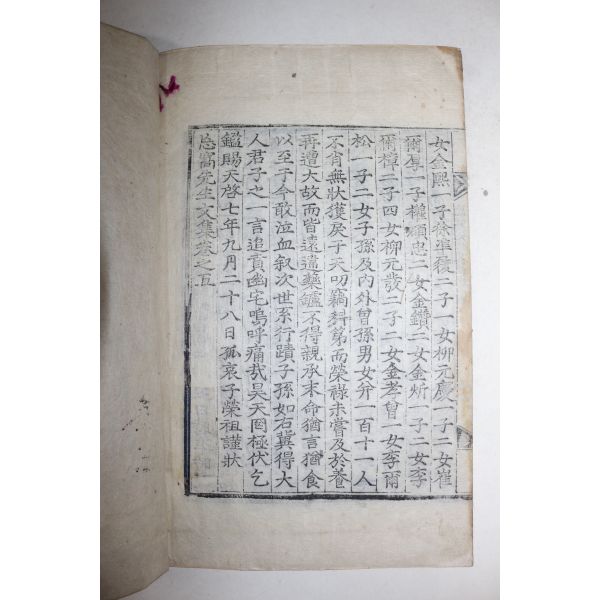 女金熙一子徐準履二子一女柳元慶一子二女崔
爾厚一子權順忠二女金鑽二女金炘一子二女李
爾樟二子四女柳元發二子二女金孝曾一女李爾
松一子二女子孫及內外曾孫男女幷一百十一人
不肖無狀獲戾于天叨竊科第而榮祿未嘗及於養
再遭大故而皆遠違藥鑪不得親承末命猶言猶食
以至于今敢泣血叙次世系行蹟子孫如右冀得大
人君子之一言追賁幽宅嗚呼痛哉昊天罔極伏乞
鑑賜天啓七年九月二十八日孤哀子榮祖謹狀
先生文集卷之五